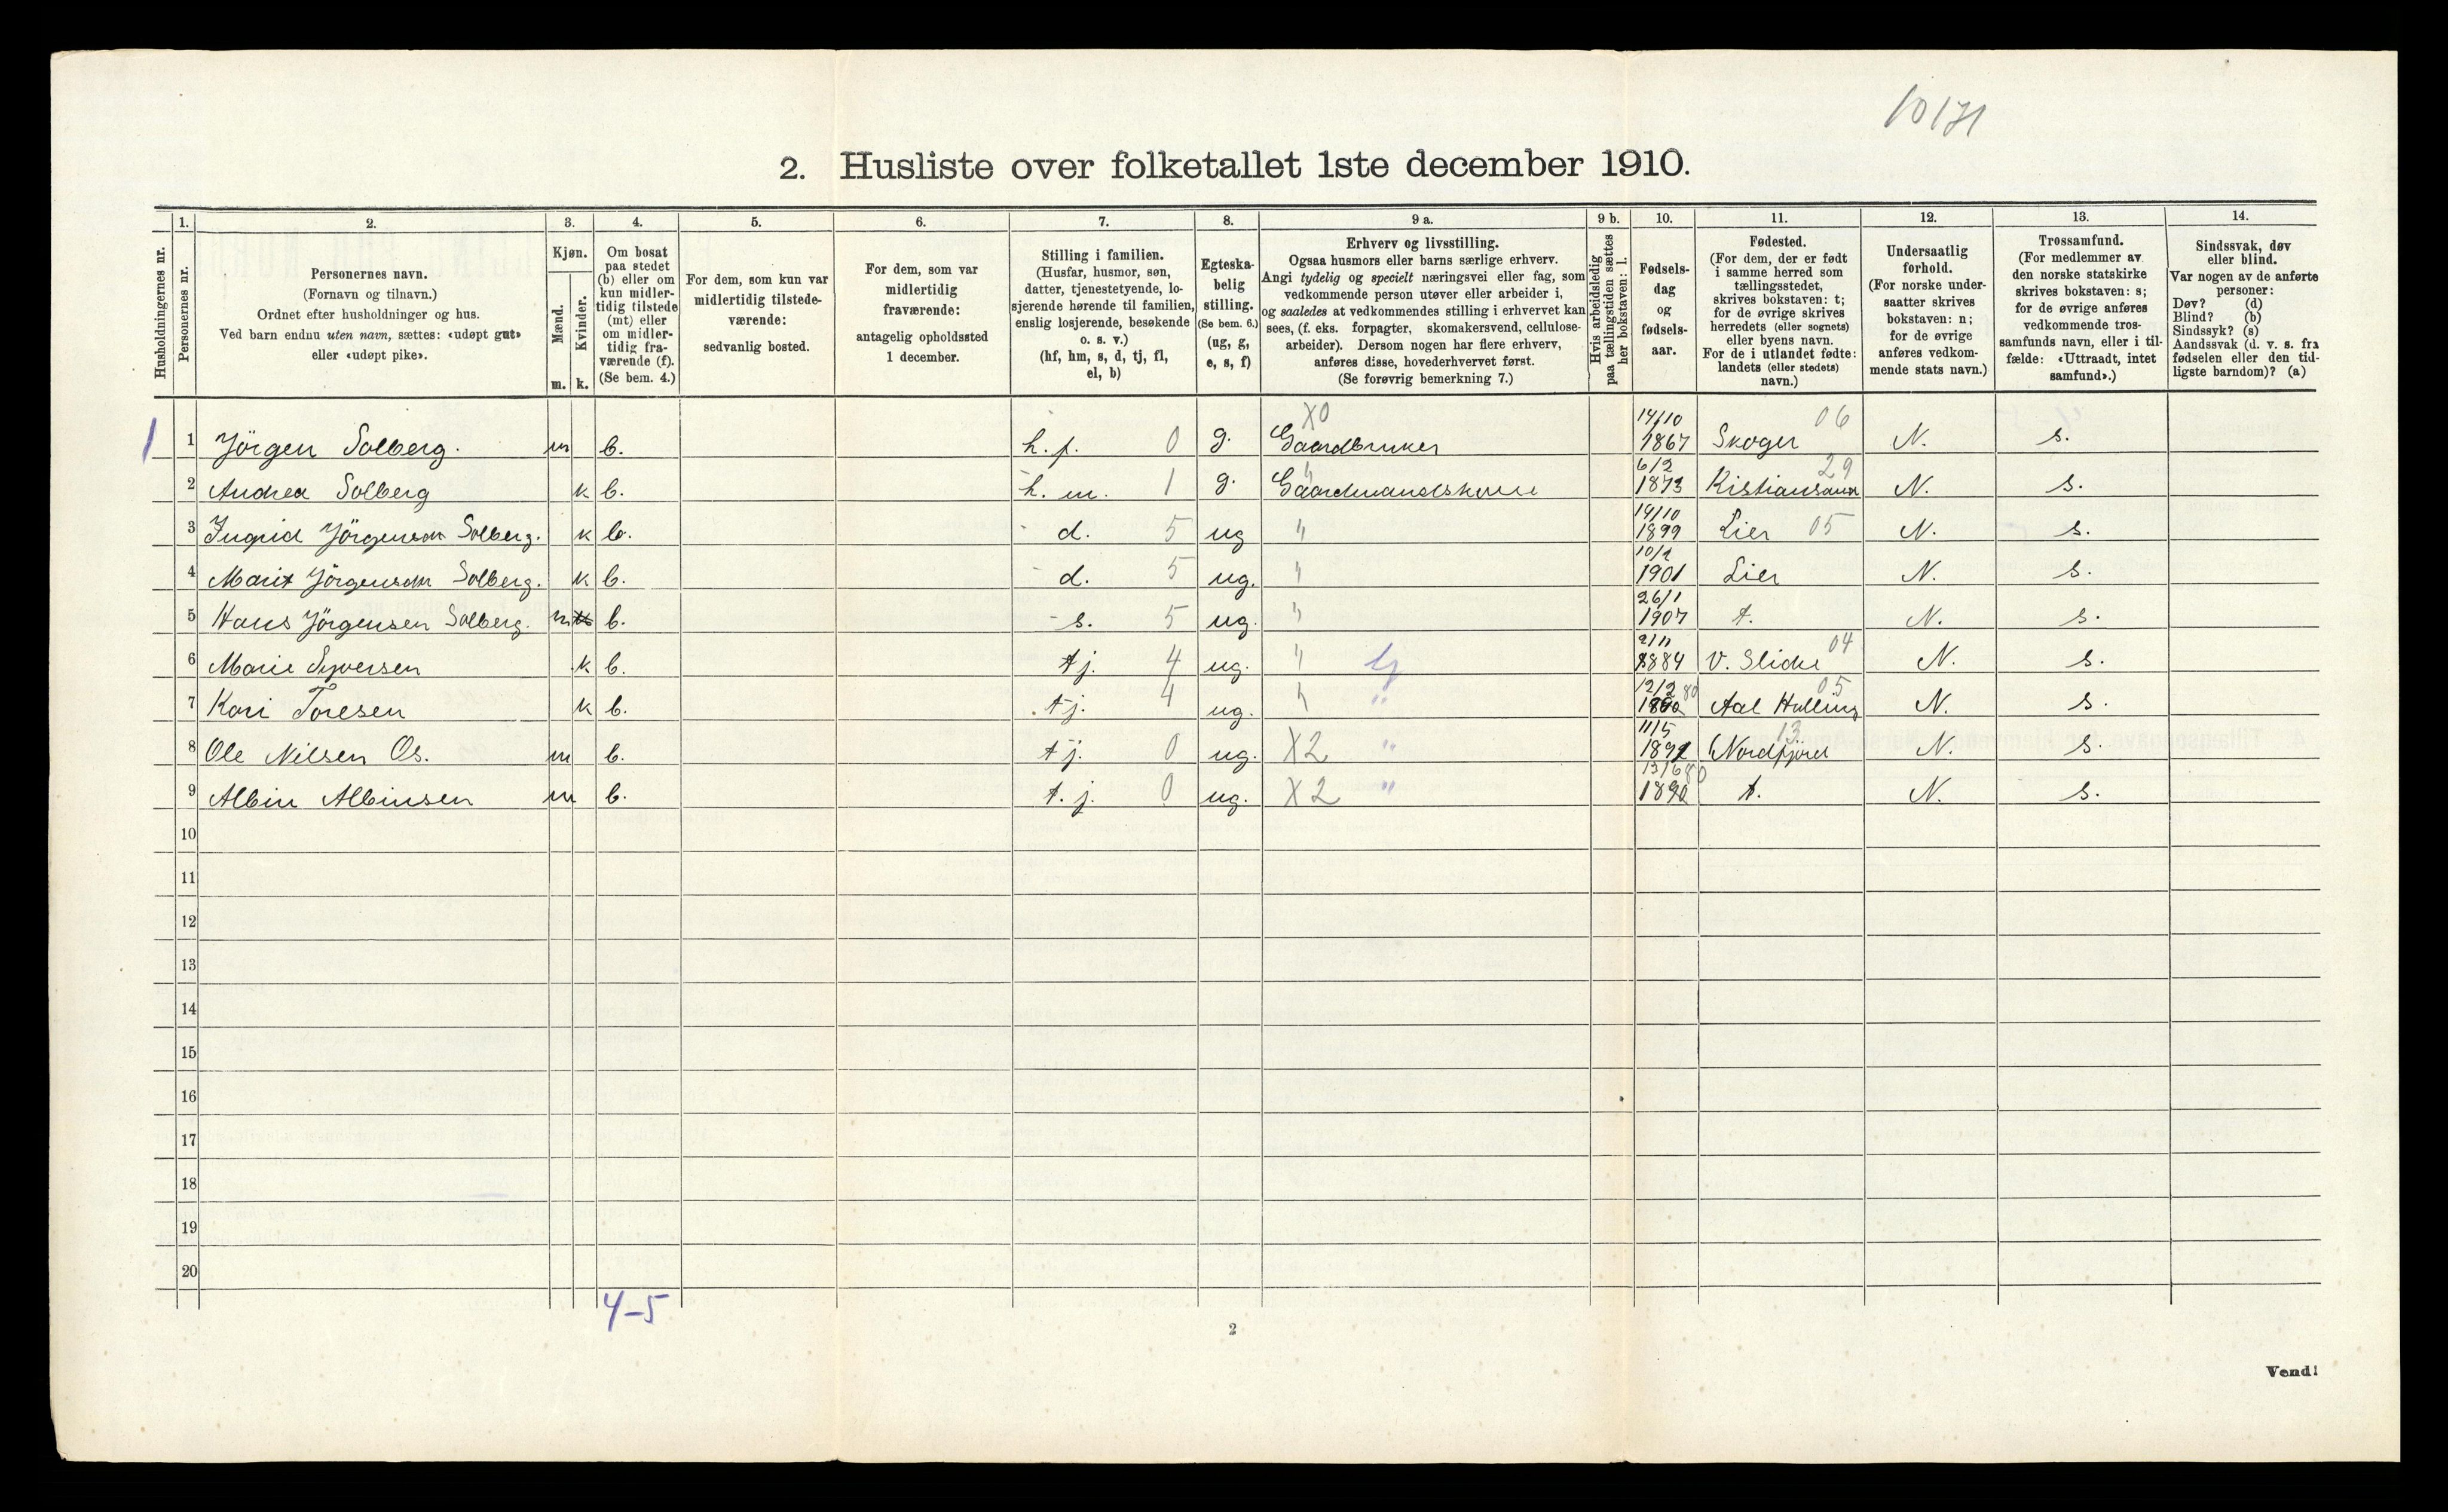 10171
2. Husliste over folketallet 1ste december 1910.
Husholdningernes nr.
1.
Personernes nr.
2.
Personernes navn.
(Fornavn og tilnavn.)
Ordnet efter husholdninger og hus.
Ved barn endnu uten navn, sættes: «udøpt gut»
eller «udøpt pike».
3.
Kjøn.
Mænd.
Kvinder.
m. k.
4.
Om bosat
paa stedet
(b) eller om
kun midler-
tidig tilstede
(mt) eller
om midler-
tidig fra-
værende (f).
(Se bem. 4.)
5.
For dem, som kun var
midlertidig tilstede-
værende:
sedvanlig bosted.
6.
For dem, som var
midlertidig
fraværende:
antagelig opholdssted
1 december.
7.
Stilling i familien.
(Husfar, husmor, søn,
datter, tjenestetyende, lo-
sjerende hørende til familien,
enslig losjerende, besøkende
o. s. v.)
(hf, hm, s, d, tj, fl,
el, b)
8.
Egteska-
belig
stilling.
(Se bem. 6.)
(ug, g,
e, s, f)
9 a.
Erhverv og livsstilling.
Ogsaa husmors eller barns særlige erhverv.
Angi tydelig og specielt næringsvei eller fag, som
vedkommende person utøver eller arbeider i,
og saaledes at vedkommendes stilling i erhvervet kan
sees, (f. eks. forpagter, skomakersvend, cellulose-
arbeider). Dersom nogen har flere erhverv,
anføres disse, hovederhvervet først.
(Se forøvrig bemerkning 7.)
9 b.
Hvis arbeidsledig
paa tællingstiden sættes
her bokstaven: l.
10.
Fødsels-
dag
og
fødsels-
aar.
11.
Fødested.
(For dem, der er født
i samme herred som
tællingsstedet,
skrives bokstaven: t;
for de øvrige skrives
herredets (eller sognets)
eller byens navn.
For de i utlandet fødte:
landets (eller stedets)
navn.)
12.
Undersaatlig
forhold.
(For norske under-
saatter skrives
bokstaven: n;
for de øvrige
anføres vedkom-
mende stats navn.)
13.
Trossamfund.
(For medlemmer av
den norske statskirke
skrives bokstaven: s;
for de øvrige anføres
vedkommende tros-
samfunds navn, eller i til-
fælde: «Uttraadt, intet
samfund».)
14.
Sindssvak, døv
eller blind.
Var nogen av de anførte
personer:
Døv? (d)
Blind? (b)
Sindssyk? (s)
Aandssvak (d. v. s. fra
fødselen eller den tid-
ligste barndom)? (a)
1 1 Jörgen Solberg. m b. h. f. 0 g. X0 Gaardbruker 14/10 1867 Skoger 06 N. s.
2 Andrea Solberg k b. h. m. 1 g. " Gaardmandskone 6/2 1873 Kistiansand 29 N. s.
3 Ingrid Jörgensen Solberg. k b. d. 5 ug " 14/10 1899 Lier 05 N. s.
4 Marit Jörgensen Solberg. k b. d. 5 ug. " 10/1 1901 Lier N. s.
5 Hans Jörgensen Solberg. m b. s. 5 ug. " 26/1 1907 t. N. s.
6 Marie Syversen k b. tj. 4 ug. " 2/11 1884 V. Slidre 04 N. s.
7 Kari Toresen k b. tj. 4 ug. " " 12/2 80 Aal Halling 05 N. s.
8 Ole Nilsen Os. m b. tj. 0 ug. X2 " 11/5 Nordfjord 13 N. s.
9 Albin Albinsen m b. t. j. 0 ug. X2 " 13/6 t. N. s.
10
11
12
13
14
15
16
17
18
19
20
4-5
2
Vend!